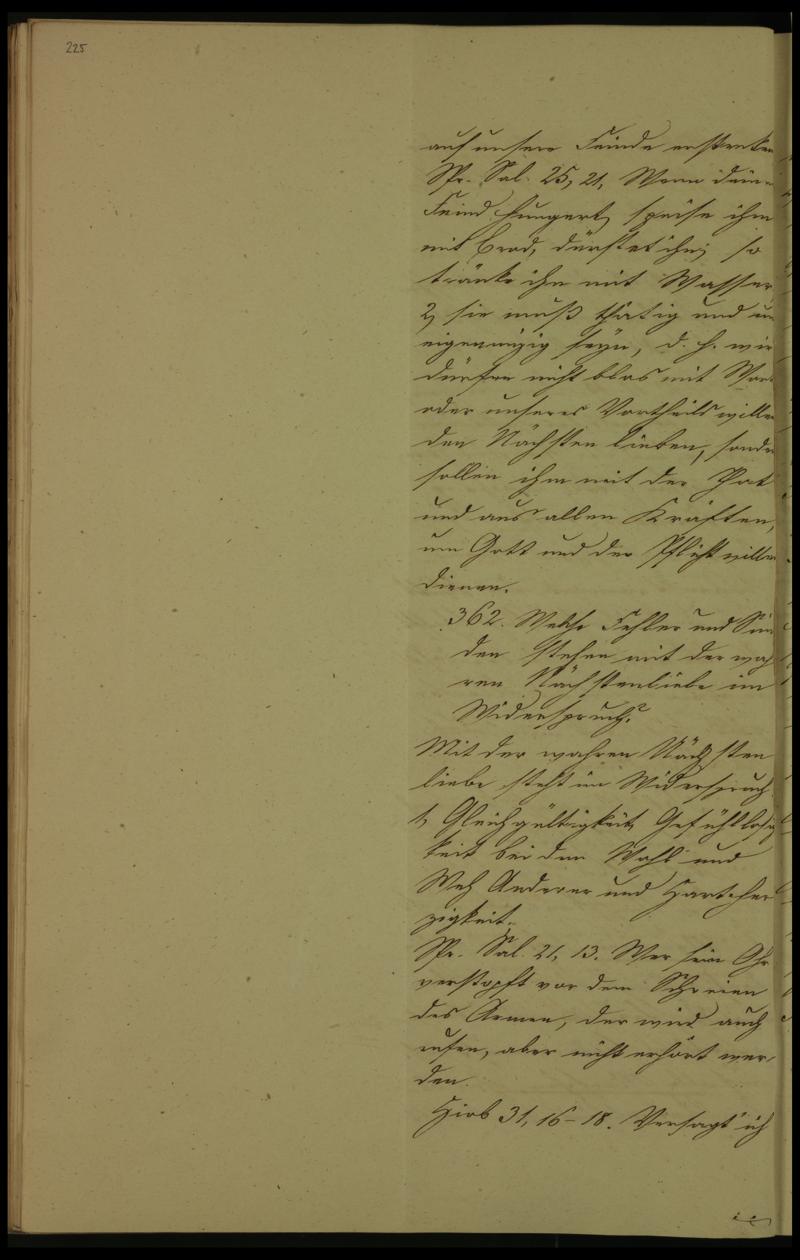 225
auf unsere Feinde erstrecken
Spr. Sal. 25, 21, Wenn dein
Feind hungert, speise ihn
mit Brod, dürstet ihn, so
tränke ihn mit Wasser,
2, sie muß thätig und un
eigennüzig seyn, d. h. wir
dürfen nicht blos mit Wort
oder unseres Vortheils willen
den Nächsten lieben, sonde
sollen ihm mit der That
und aus allen Kräften,
um Gott und der Pflicht willen
dienen.
362. Welche Fehler und Sün
den stehen mit der wah
ren Nächstenliebe im
Widerspruch?
Mit der wahren Nächsten
liebe steht im Widerspruch
1, Gleichgültigkeit, Gefühllosig
keit bei dem Wohl und
Weh Anderer und Harther
zigkeit.
Spr. Sal. 21, 13. Wer sein Ohr
verstopft vor dem Schreien
des Armen, der wird auch
rufen, aber nicht erhört wer
den.
Hiob 31, 16-18. Versagt' ich